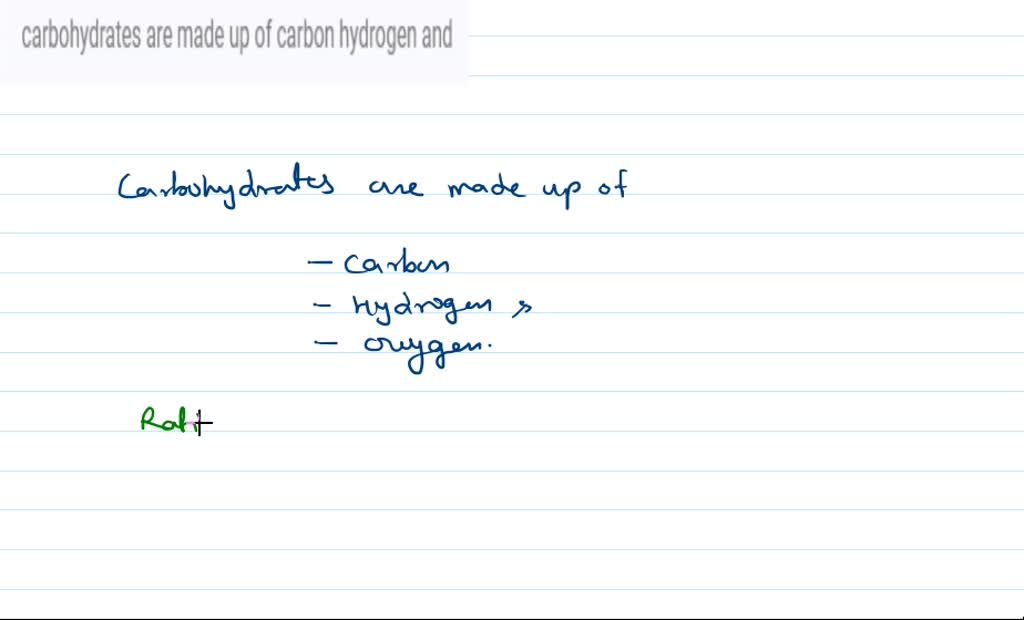 carbohydrates are made up of carbon hydrogen and
Carbohydrates are made up of
- carbon
- Hydrogen
- oxygen.